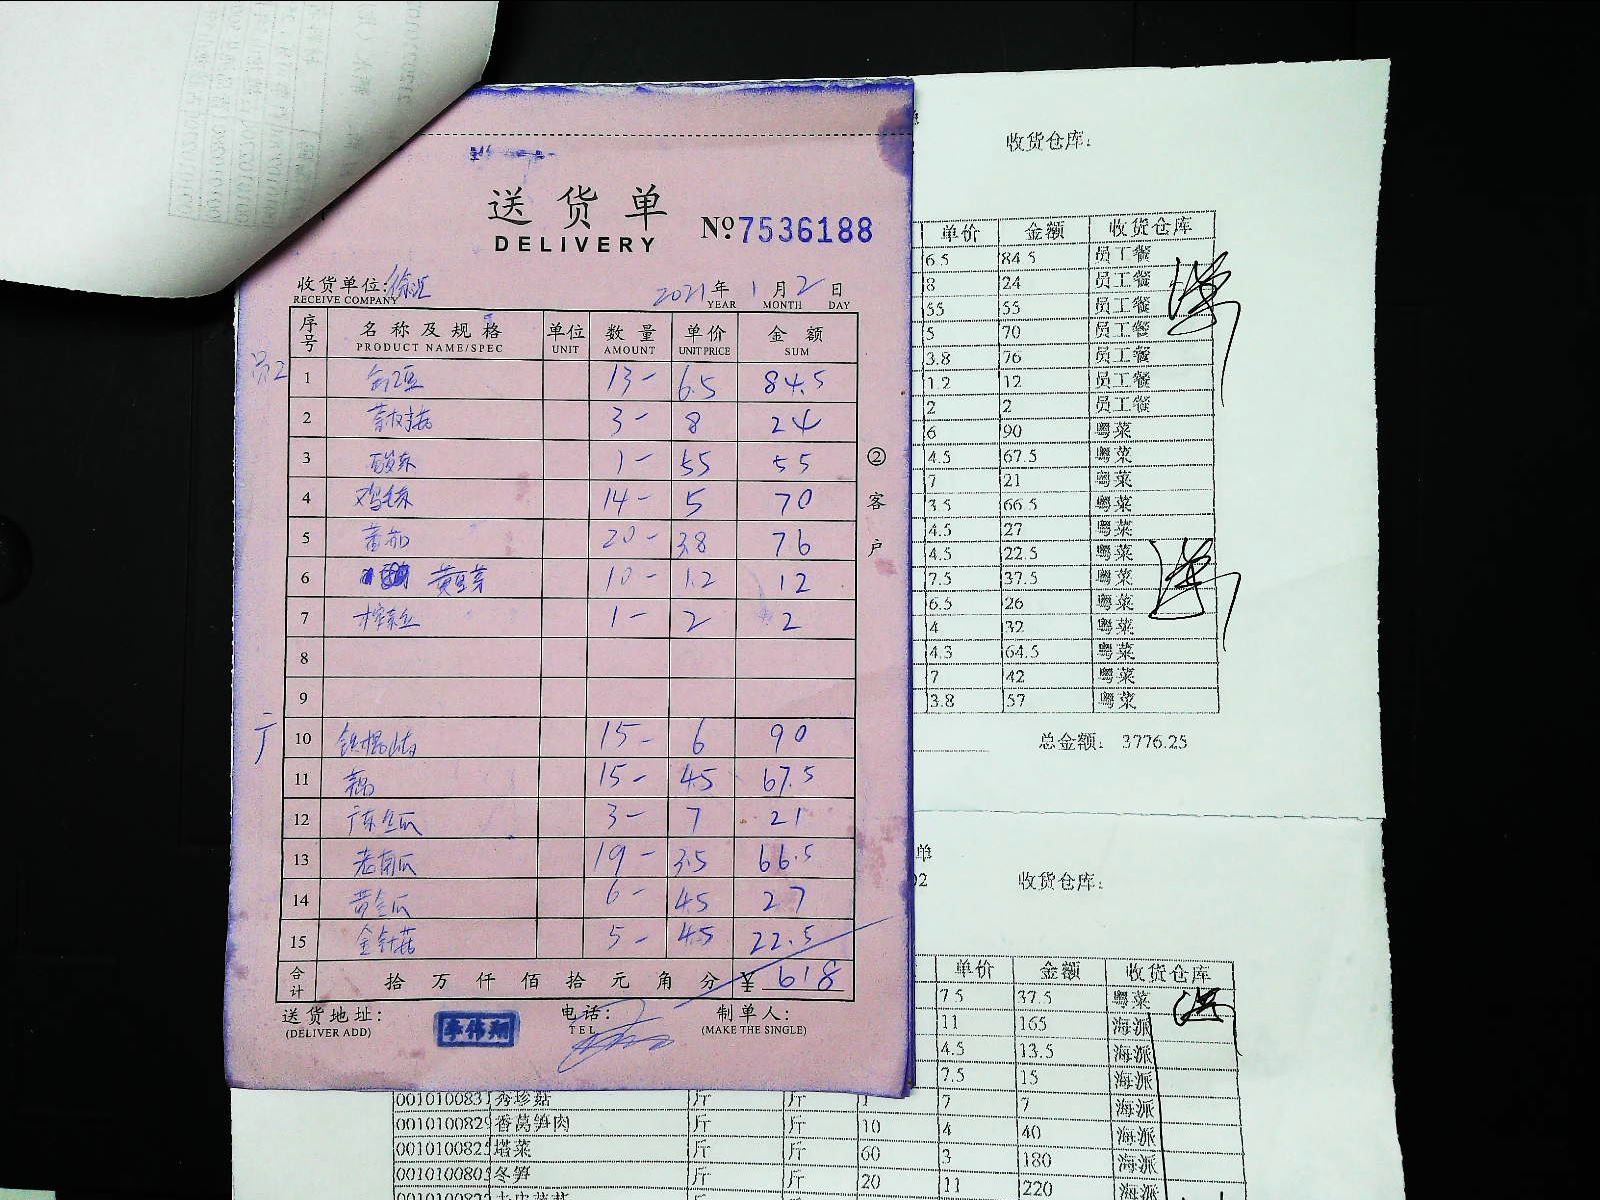 送货单
DELIVERY
№ 7536188
收货单位:徐汇 2021年1月2日
RECEIVE COMPANY YEAR MONTH DAY
序号 名称及规格 单位 数量 单价 金额
PRODUCT NAME/SPEC UNIT AMOUNT UNIT PRICE SUM
员工
1 13- 6.5 84.5
2 茶树菇 3- 8 24
3 酸菜 1- 55 55
4 鸡毛菜 14- 5 70
5 番茄 20- 3.8 76
6 黄豆芽 10- 1.2 12
7 榨菜丝 1- 2 2
8
9
广
10 铁棍山药 15- 6 90
11 藕 15- 4.5 67.5
12 广东丝瓜 3- 7 21
13 老南瓜 19- 3.5 66.5
14 黄金瓜 6- 4.5 27
15 金针菇 5- 4.5 22.5
合计 拾万仟佰拾元角分 ¥618
送货地址: 电话: 制单人:
(DELIVER ADD) TEL (MAKE THE SINGLE)
李伟翔
②客户
收货仓库:
单价 金额 收货仓库
6.5 84.5 员工餐
8 24 员工餐
55 55 员工餐
5 70 员工餐
3.8 76 员工餐
1.2 12 员工餐
2 2 员工餐
6 90 粤菜
4.5 67.5 粤菜
7 21 粤菜
3.5 66.5 粤菜
4.5 27 粤菜
4.5 22.5 粤菜
7.5 37.5 粤菜
6.5 26 粤菜
4 32 粤菜
4.3 64.5 粤菜
7 42 粤菜
3.8 57 粤菜
总金额: 3776.25
单
02 收货仓库:
单价 金额 收货仓库
7.5 37.5 粤菜
11 165 海派
4.5 13.5 海派
7.5 15 海派
0010100831 秀珍菇 斤 斤 1 7 7 海派
0010100829 香莴笋肉 斤 斤 10 4 40 海派
0010100825 塔菜 斤 斤 60 3 180 海派
0010100805 冬笋 斤 斤 20 11 220 海派